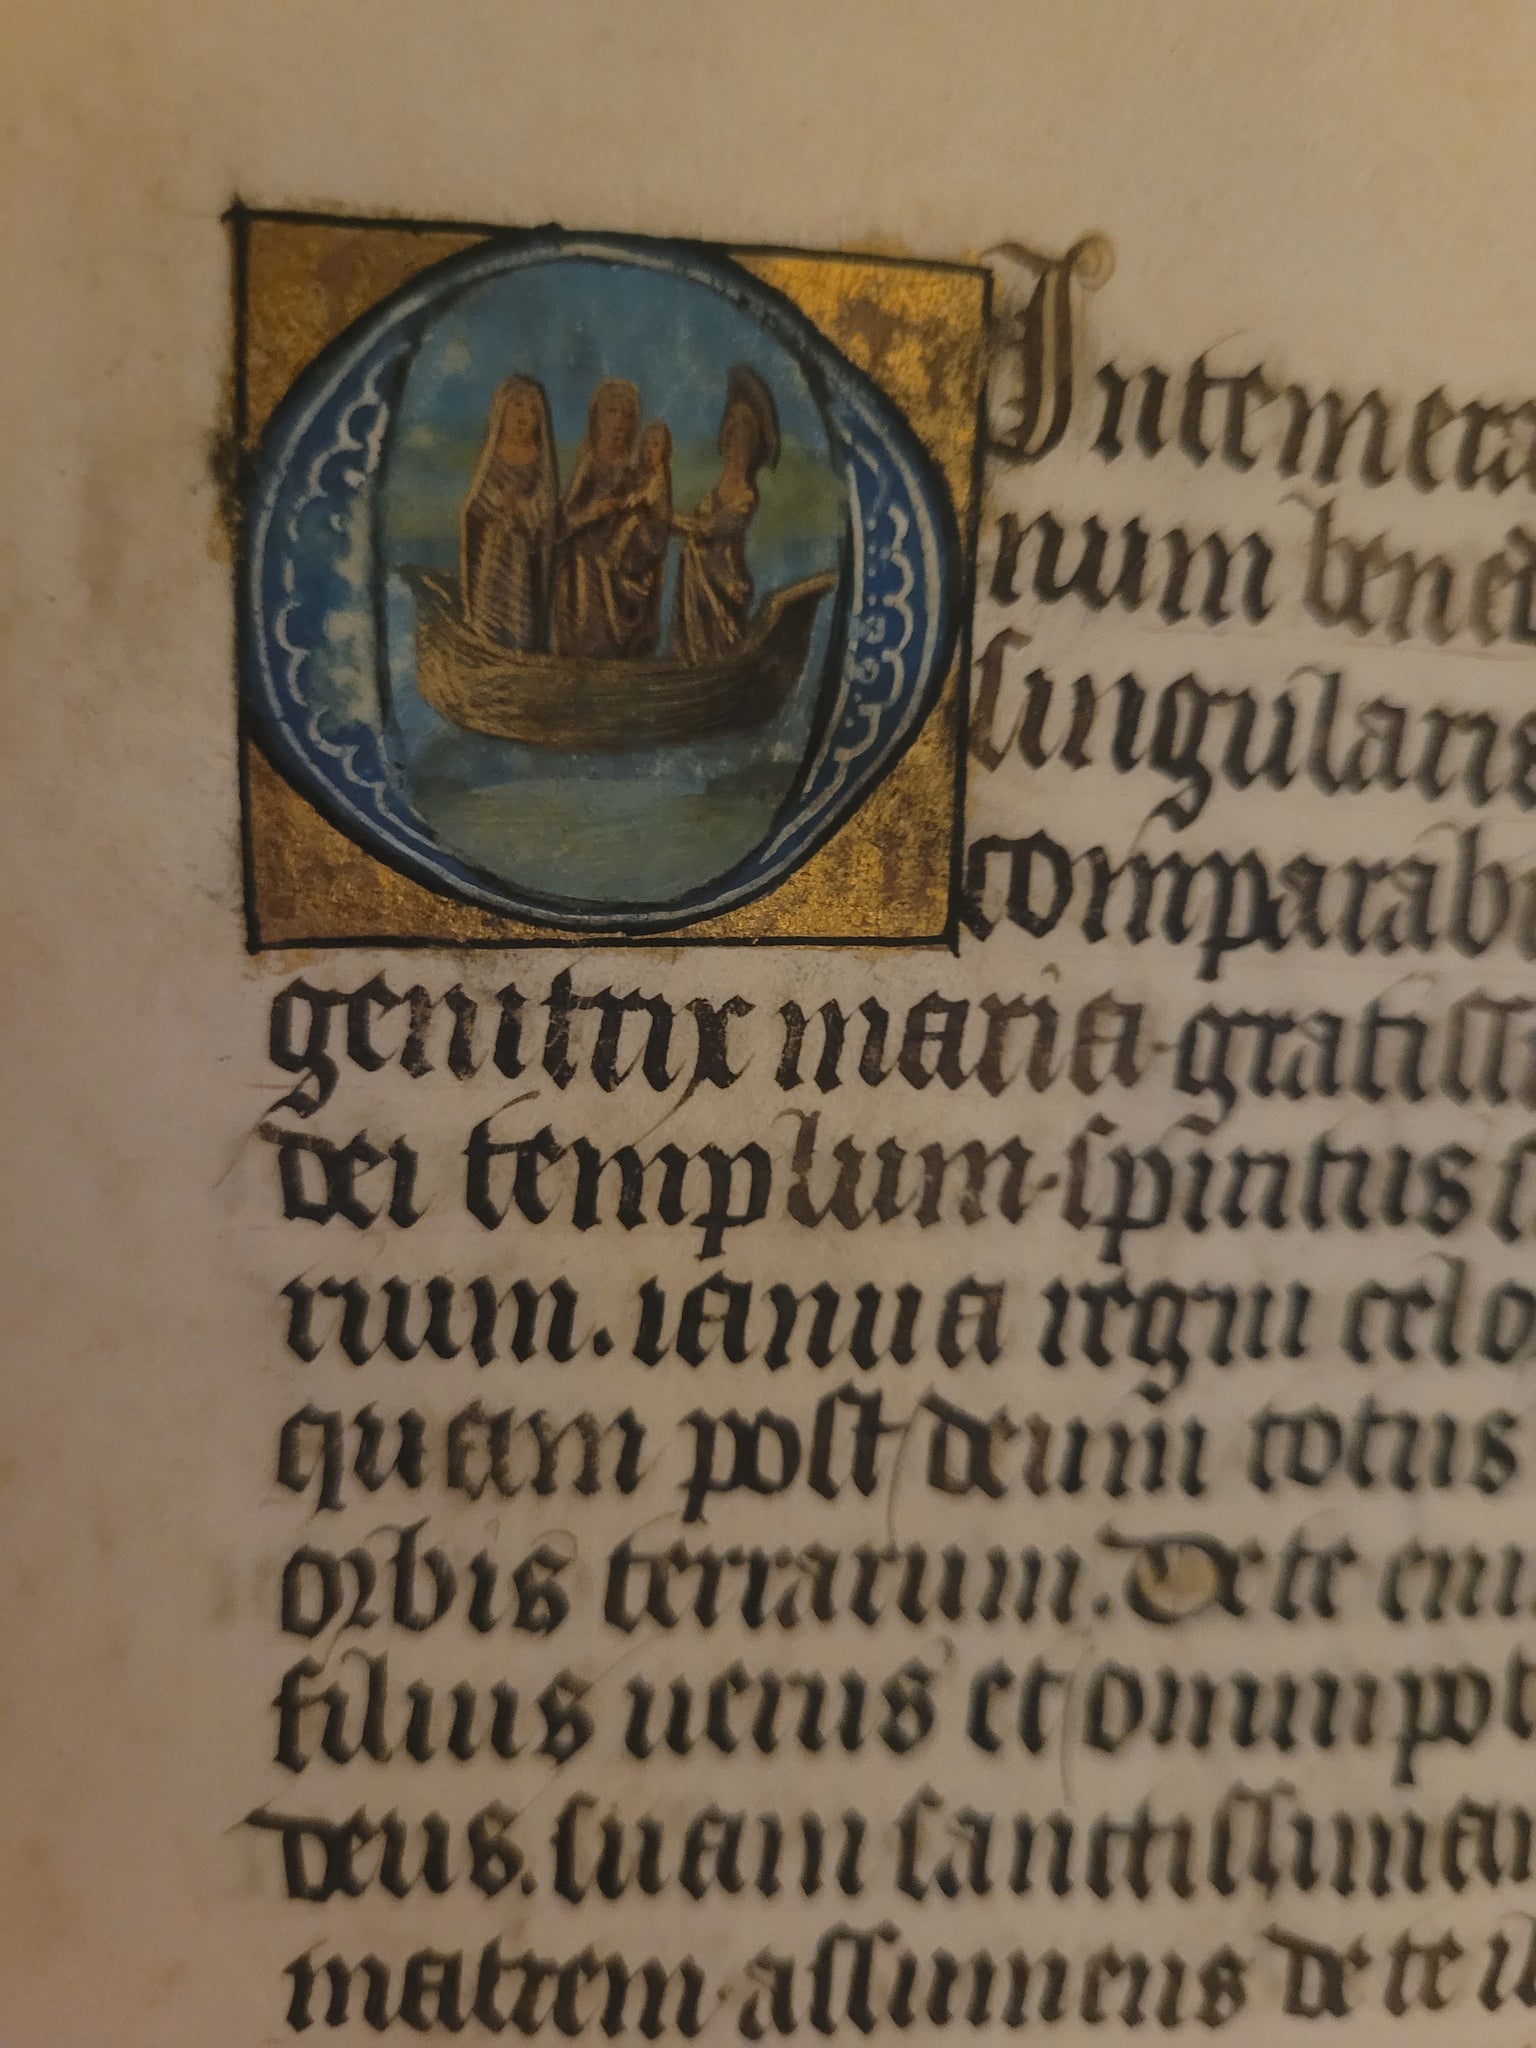 O Intemera
num bened
singularis
comparab
genitrix maria. gratissi
dei templum. spiritus s
rium. ianua regni celo
quam post deum totus
orbis terrarum. De te eni
filius uerus et omnipot
deus. suam sanctissimam
matrem assumens de te il